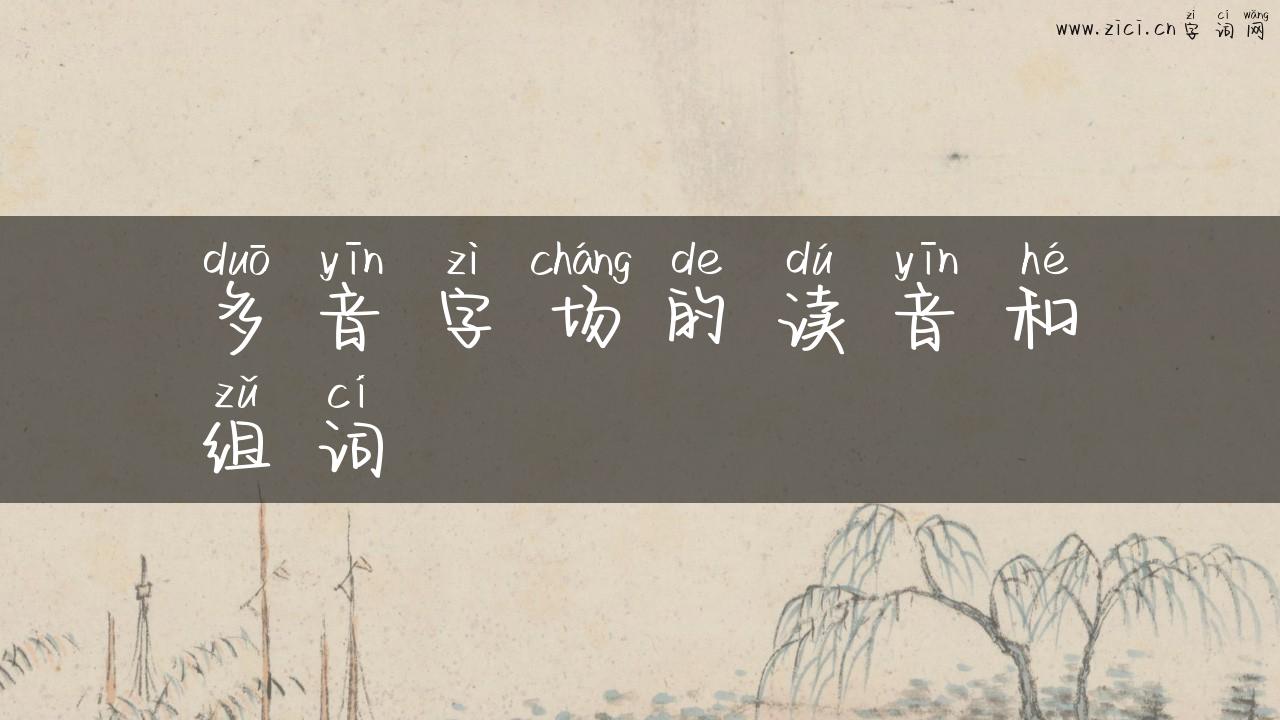 zì cí wǎng
www.zici.cn 字词网
duō yīn zì cháng de dú yīn hé
多音字场的读音和
zǔ cí
组词